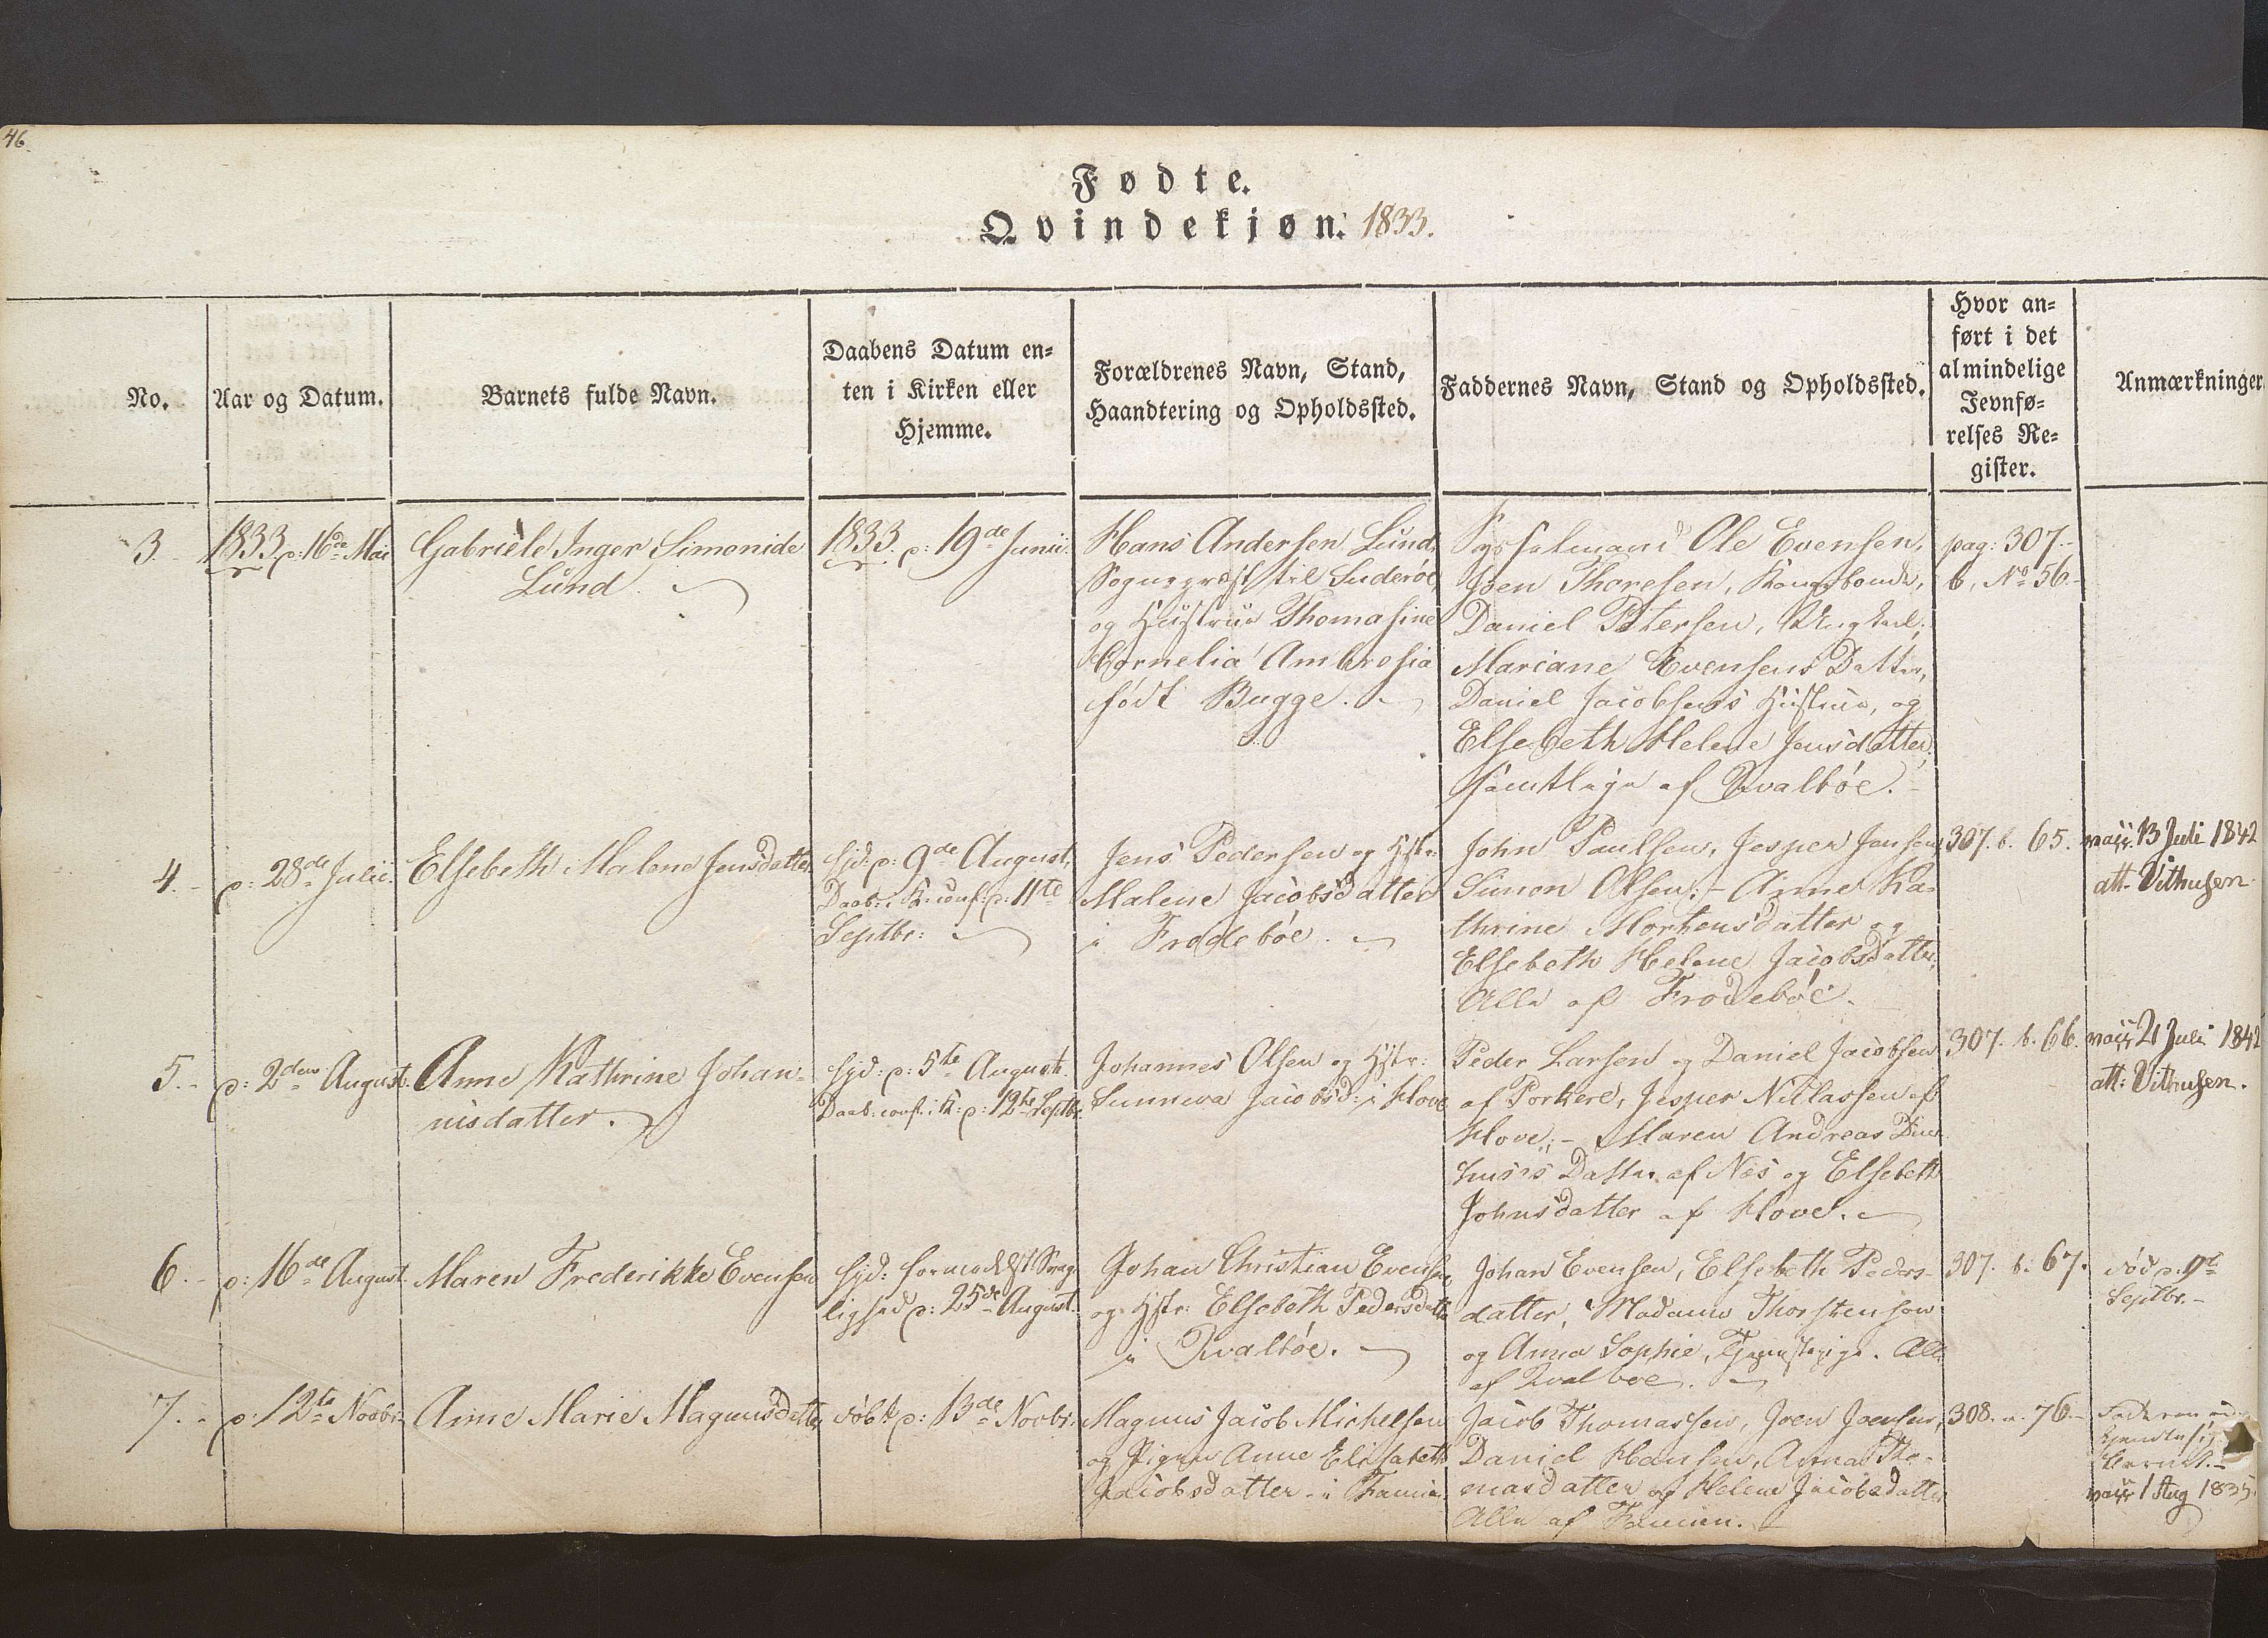 46.
Fødte.
Qvindekjøn. 1833.
No.
Aar og Datum.
Barnets fulde Navn.
Daabens Datum en-
ten i Kirken eller
Hjemme.
Forældrenes Navn, Stand,
Haandtering og Opholdssted.
Faddernes Navn, Stand og Opholdssted.
Hvor an-
ført i det
almindelige
Jevnfø-
relses Re-
gister.
Anmærkninger
3
1833 p: 16de Mai
Gabriele Inger Simonide
Lund.
1833. p: 19de Junii.
Hans Andersen Lund,
Sognepræst til Suderöe,
og Hustrue Thomasine
Cornelia Ambrosia
födt Bugge.
Sysselmand Ole Evensen,
Joen Thoresen, Kongsbonde,
Daniel Petersen, Ungkarl,
Mariane Evensens Datter,
Daniel Jacobsens Hustrue, og
Elsebeth Helene Jensdatter,
samtlige af Qvalböe.
pag: 307.
b, No 56.
4.
p: 28de Julii.
Elsebeth Malene Jensdatter
Hjd: p: 9de August,
Daab: i K: conf: p: 11te
Septbr:
Jens Pedersen og Hstr:
Malene Jacobsdatter
i Frodeböe.
John Paulsen, Jesper Jensen,
Simon Olsen; - Anne Ka-
thrine Mortensdatter og
Elsebeth Helene Jacobsdatter,
Alle af Frodeböe.
307. b. 65.
vacc. 13 Juli 1842
att. Vithusen
5.
p: 2den August.
Anne Kathrine Johan-
nisdatter.
Hjd: p: 5te August.
Daab: conf: i K: p: 12te Septbr.
Johannes Olsen og Hstr:
Sunneva Jacobsd: i Hove
Peder Larsen og Daniel Jacobsen
af Porkere, Jesper Niclassen af
Hove; - Maren Andreas
Datter af Nes og Elsebeth
Johnsdatter af Hove.
307. b. 66.
vacc 21 Juli 1842
att: Vithusen.
6.
p: 16de August
Maren Frederikke Evensen
Hjd: formedelst Svag-
lighed p: 25de August.
Johan Christian Evensen
og Hstr: Elsebeth Pedersdatter
i Qvalböe.
Johan Evensen, Elsebeth Peders-
datter, Madame Thorstensen
og Anna Sophie, Tjenestepige. Alle
af Qvalböe.
307. b: 67.
död p: 9de
Septbr.
7.
p: 12te Novbr.
Anne Marie Magnusdatter
döbt p: 13de Novbr.
Magnus Jacob Michelsen
og Pigen Anne Elisabeth
Jacobsdatter i Famien.
Jacob Thomassen, Joen Joensen,
Daniel Hansen, Anna Tho-
masdatter og Helene Jacobsdatter
Alle af Famien.
308. a. 76.
Faderen
kjendte sig
Barnet.
vacc 1 Aug 1835.